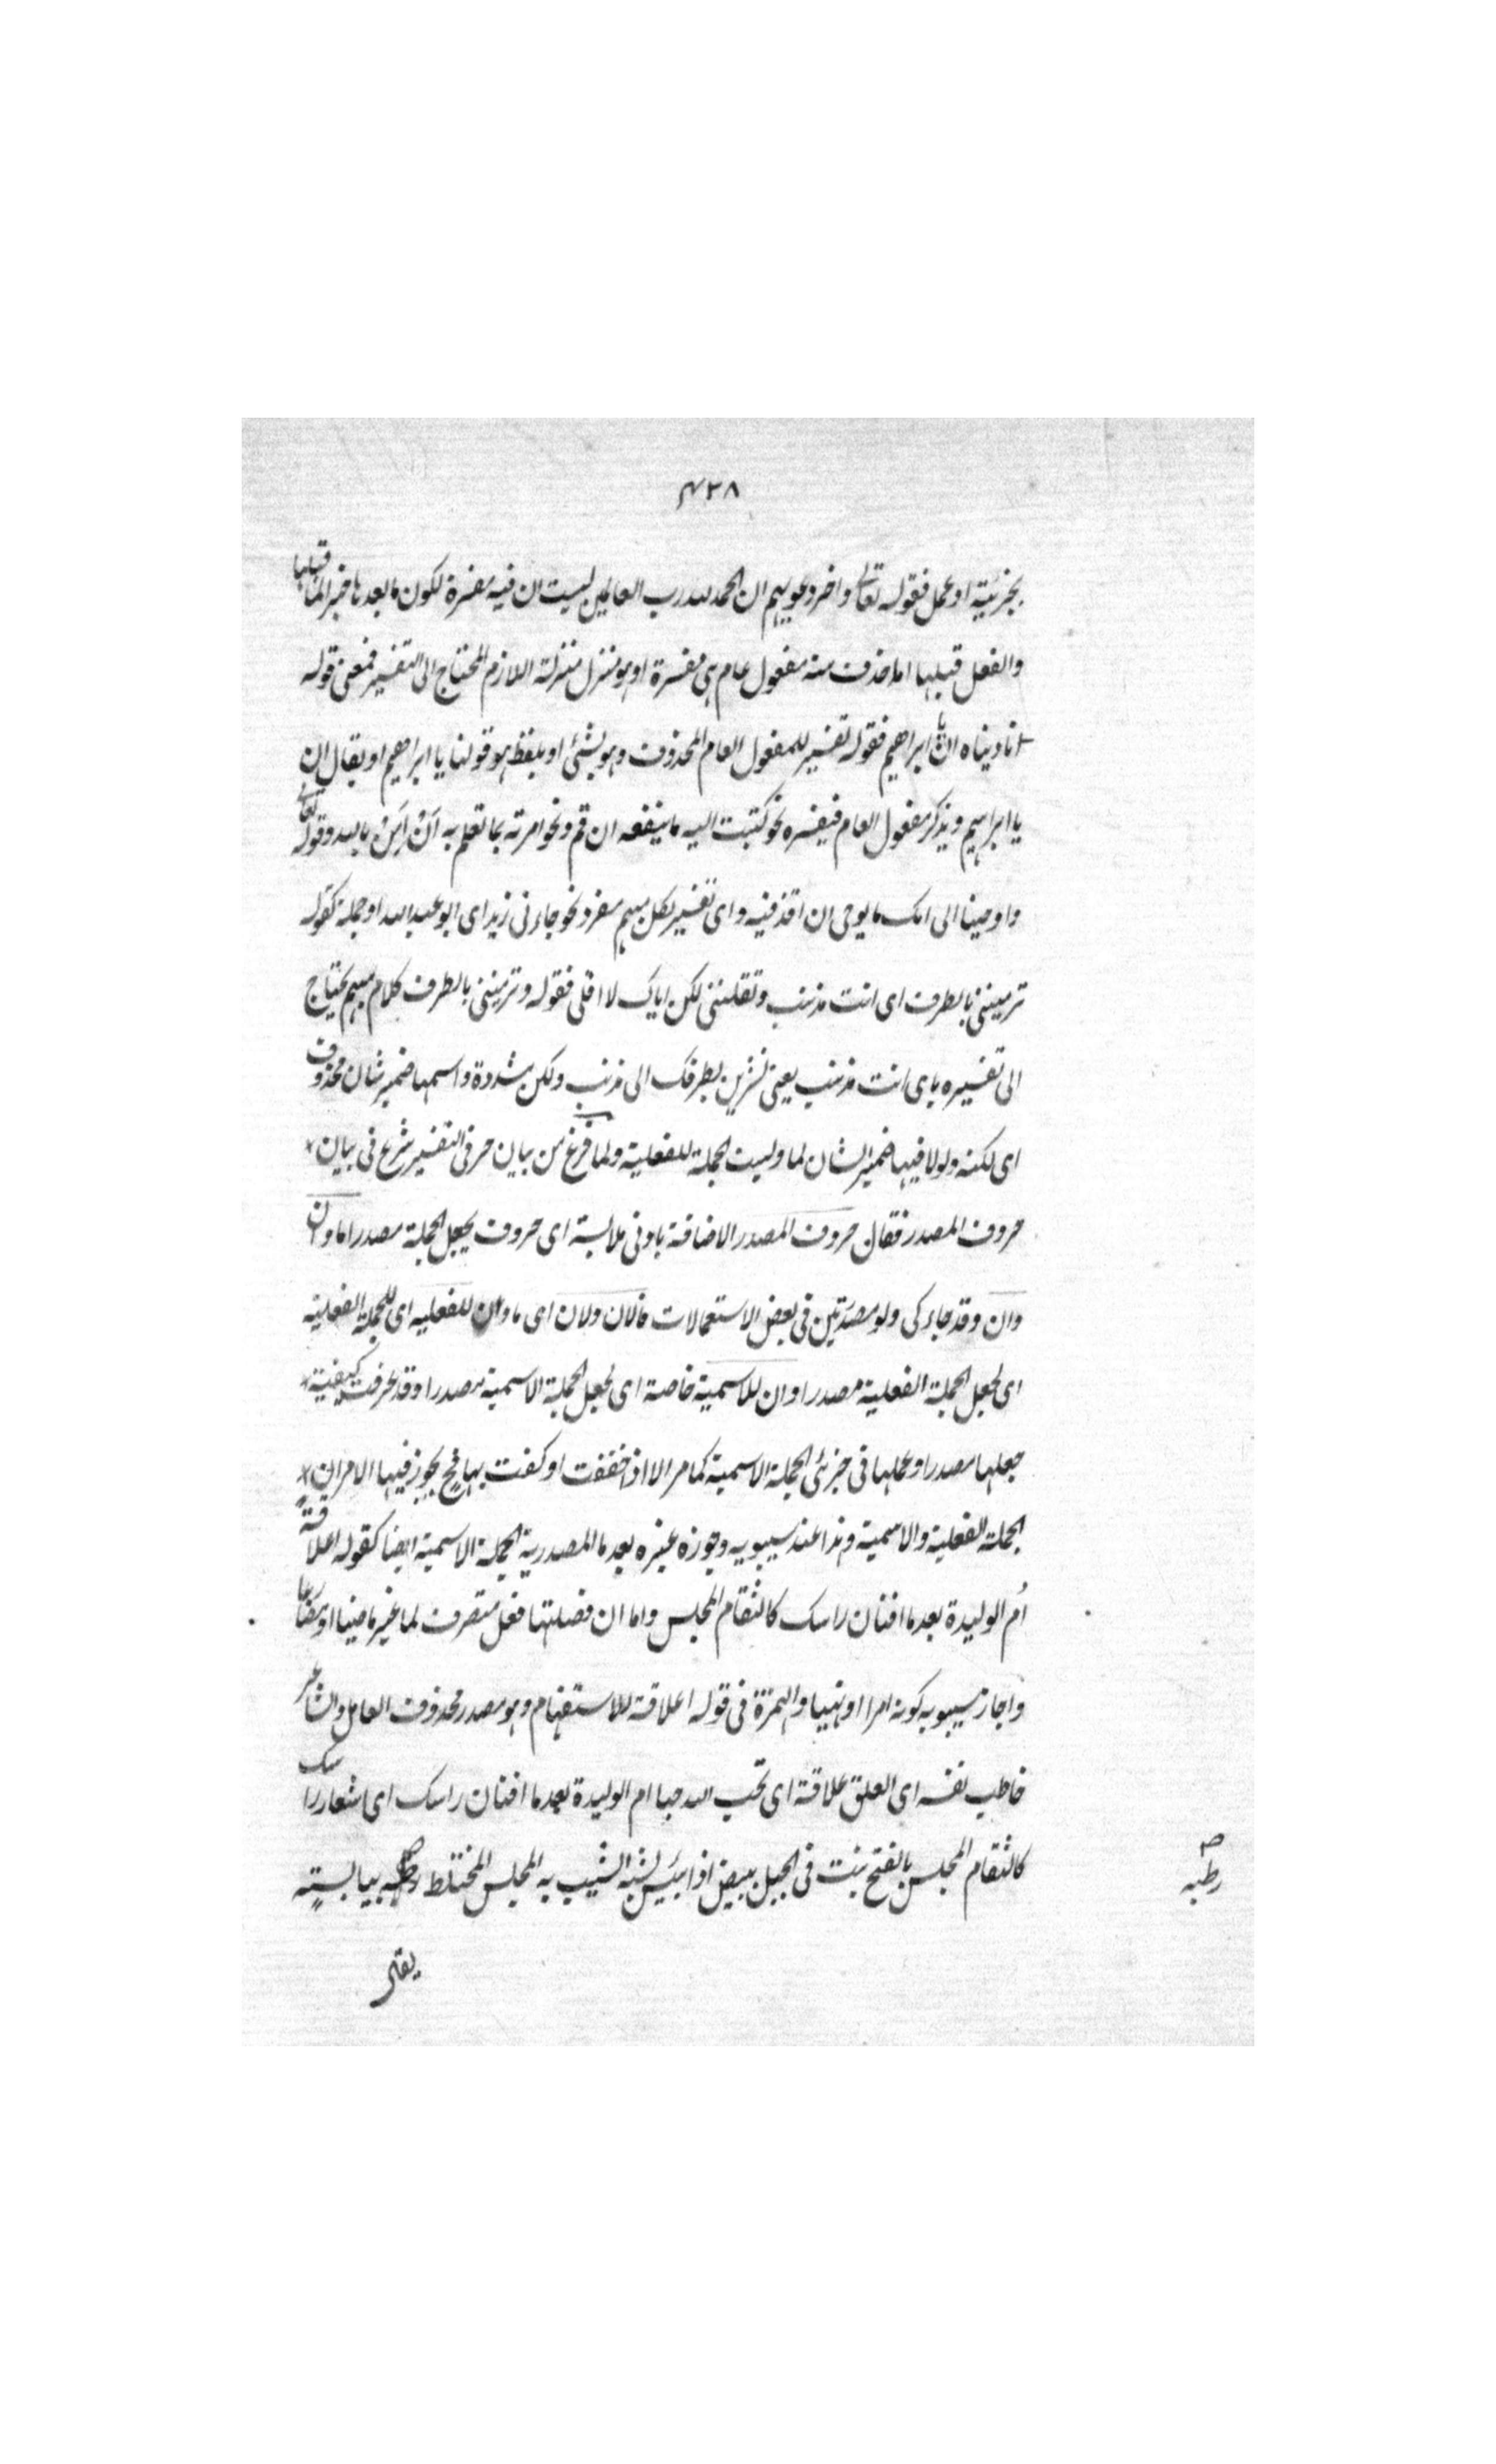 ۴۳۸
بجزئية او عمل فقوله تعالى واخر دعويهم ان الحمد لله رب العالمين ليست ان فيه مفسرة لكون ما بعدها خبرا لما قبلها
والفعل قبلها اما حذف منه مفعول عام هى مفسرة او هو منزل منزلة اللازم المحتاج الى التفسير فمعنى قوله
نادیناه ان يا ابراهيم فقوله تفسير للمفعول العام المحذوف وهو بشئ او بلفظ هو قولنا يا ابراهيم او يقال ان
يا ابراهيم ويذكر مفعول العام فيفسره نحو كتبت اليه ما ينفعه ان قم ونحو امرته بما تعلم به ان بالله وقوله تعالى
واوحينا الى امك ما يوحى ان اقذفيه واى تفسير لكل مبهم مفرد نحو جاءنى زيد اى ابو عبد الله او جملة كقوله
ترميننى بالطرف اى انت مذنب وتقليننى لكن اياك لا اقلى فقوله وترميننى بالطرف كلام مبهم يحتاج
الى تفسيره باى انت مذنب يعنى بطرفك الى مذنب ولكن مشددة واسمها ضمير شان محذوف
اى لكنه ولولا فيها ضمير الشان لما وليت الجملة الفعلية ولما فرغ من بيان حرفى التفسير شرع فى بيان
حروف المصدر فقال حروف المصدر الاضافة بادنى ملابسة اى حروف يجعل الجملة مصدرا ما وان
وان وقد جاء كى ولو مصدرتين فى بعض الاستعمالات فالاولان اى ما وان للفعلية اى للجملة الفعلية
اى لجعل الجملة الفعلية مصدرا وان للاسمية خاصة اى لجعل الجملة الاسمية مصدرا وقد عرفت كيفية
جعلها مصدرا وعملها فى جزئى الجملة الاسمية كما مر الا اذا خففت او كفت بها فح يجوز فيها الامران
الجملة الفعلية والاسمية وهذا عند سيبويه وجوزه غيره بعد ما المصدرية الجملة الاسمية ايضا كقوله اعلاقة
أم الوليدة بعد ما افنان راسك كالثغام المخلس واما ان فصلتها فعل متصرف لما غير ماضيا او مضارعا
واجاز سيبويه كونه امرا او نهيا والهمزة فى قوله اعلاقة للاستفهام وهو مصدر محذوف العامل والشاعر
خاطب نفسه اى العلق علاقة اى تحب الله حبا ام الوليدة بعد ما افنان راسك اى اشعار راسك
كالثغام المخلس بالفتح نبت فى الجبل يبيض اذا ايبس يشبه الشيب به المخلس المختلط رطبه بيابسته
رطبه صح
يقال